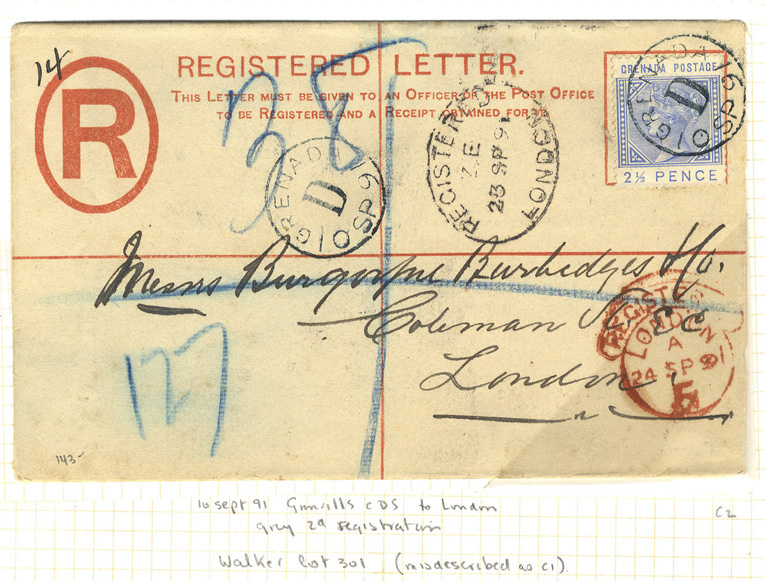 14
R
REGISTERED LETTER.
THIS LETTER MUST BE GIVEN TO AN OFFICER OF THE POST OFFICE
TO BE REGISTERED AND A RECEIPT OBTAINED FOR IT.
GRENADA POSTAGE
2½ PENCE
GRENADA
D
SP
91
GRENADA
D
SP
91
REGISTERED
LONDON
23 SP 91
38
Messrs Burgoyne Burbidges & Co.
Coleman St E C
London
REGISTERED
LONDON
A
24 SP 91
143-
10 sept 91 CDS to London
grey 2d registration
C2
Walker lot 301 (misdescribed as C1).